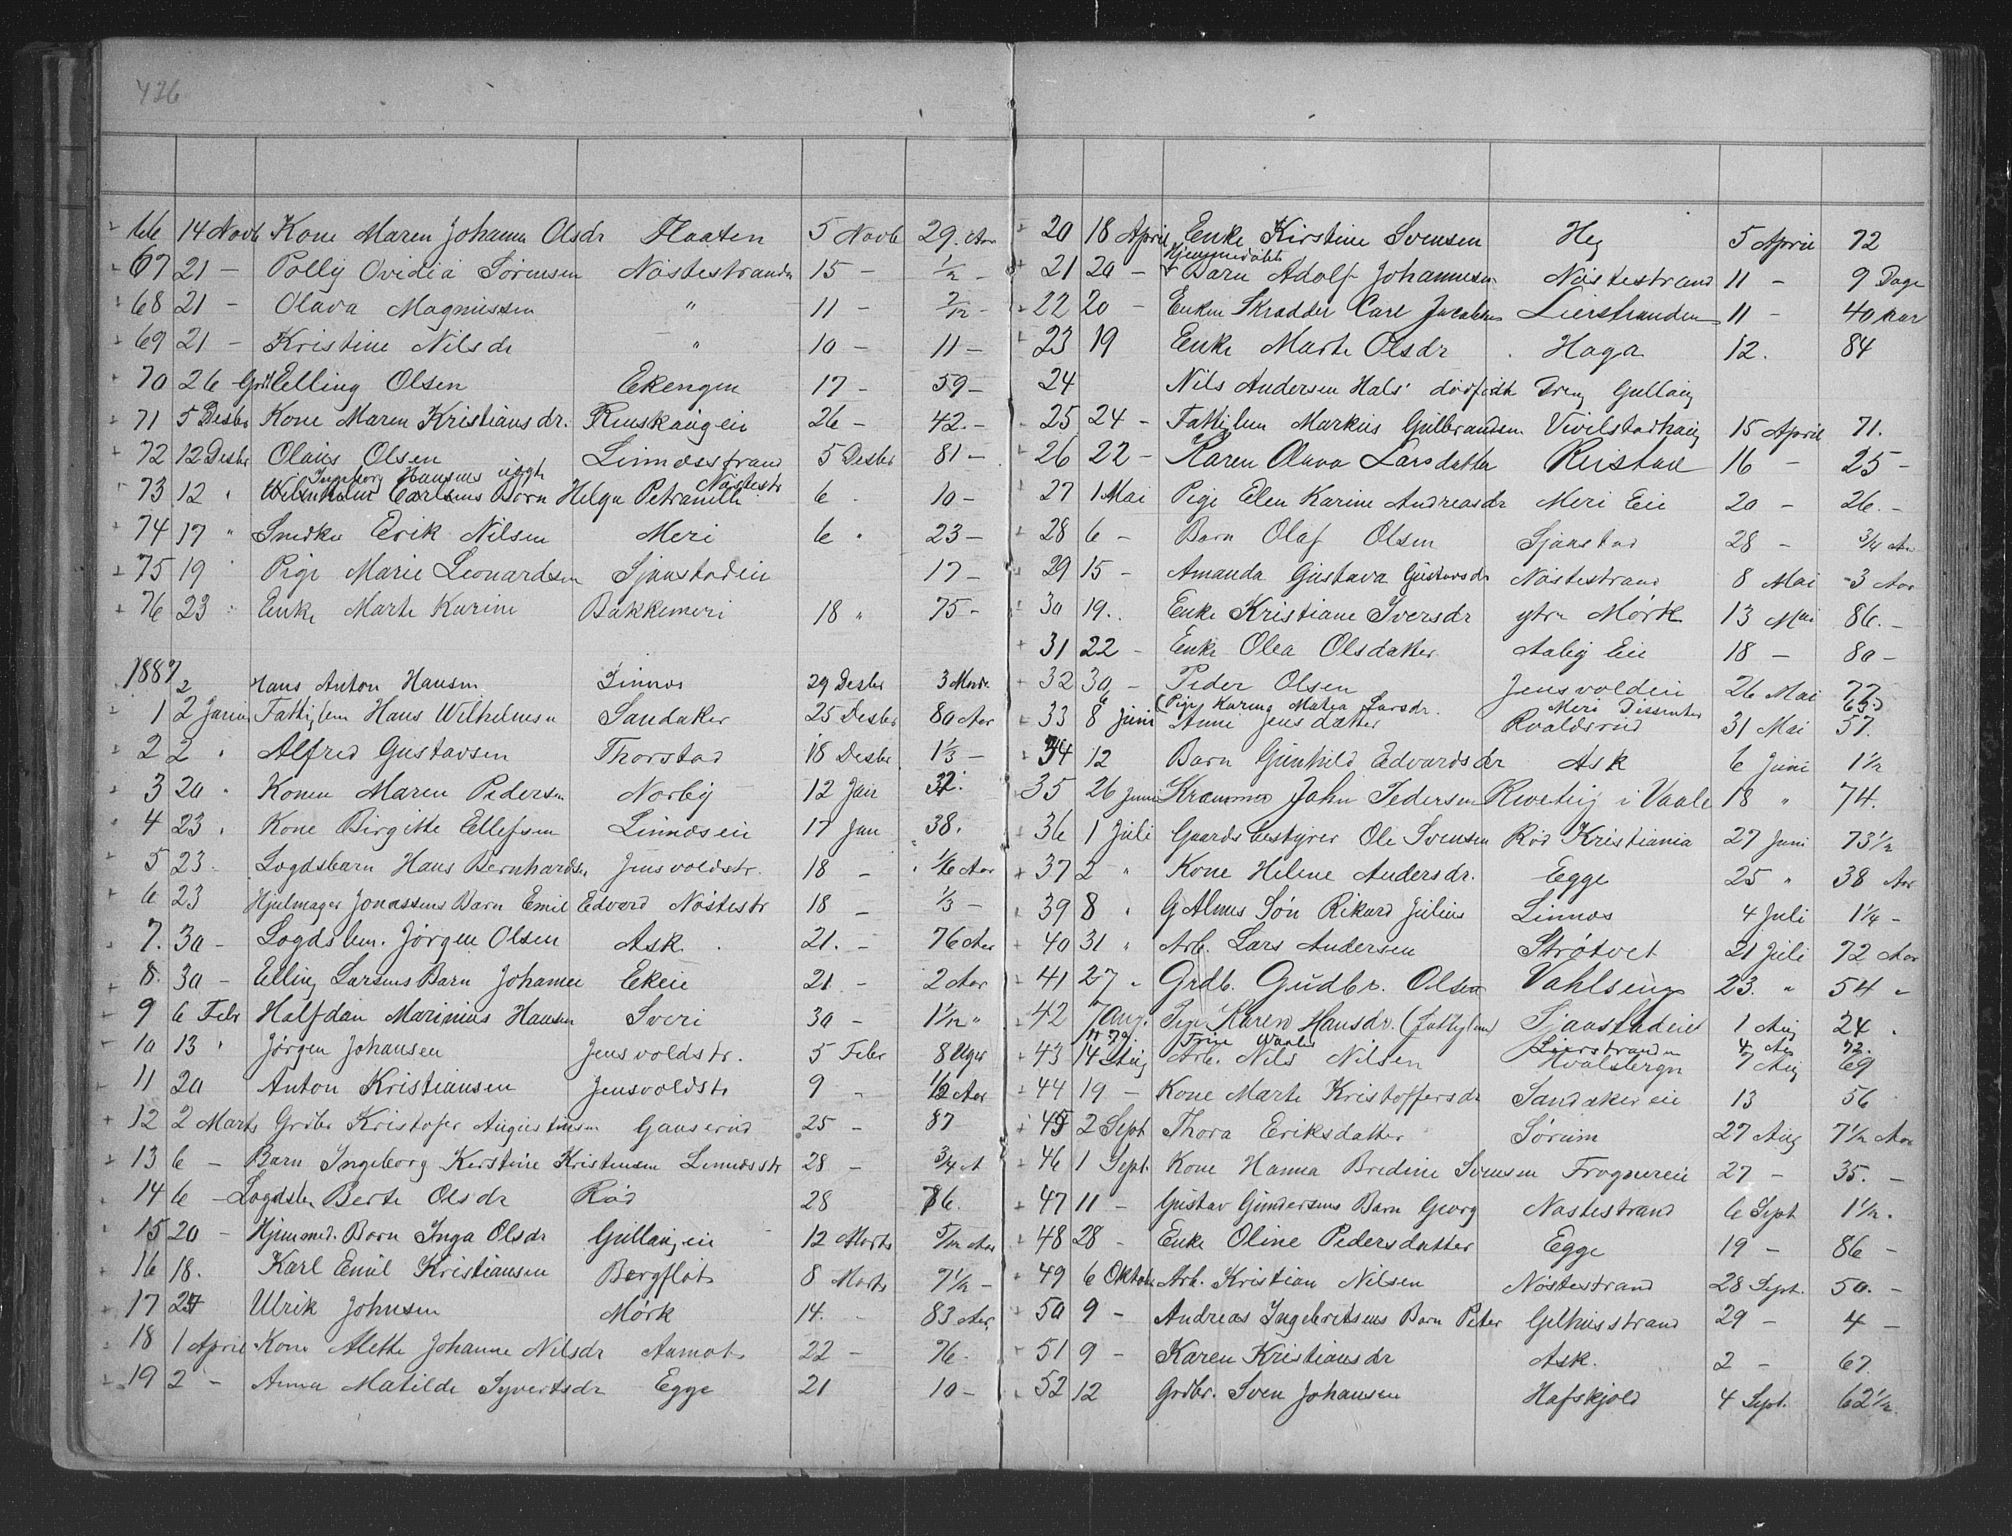 436
66 14 Novb Kone Maren Johanne Olsdr Flaaten 5 Novb 29. Aar
67 21 – Polly Ovidia Sørensen Nøstestranden 15 – 1/2 –
68 21 – Olava Magnussen " 11 – 2/12 –
69 21 – Kristine Nilsdr " 10 – 11 –
70 26 Grdb Elling Olsen Ekengen 17 – 59 –
71 5 Desbr Kone Maren Kristiansdr. 26 – 42. –
72 12 Desbr Olaus Olsen Linnesstrand 5 Desbr 81 –
Ingeborg Hansens Nøstestr
73 12 " Carlsens Barn Helga Petranille 6 " 10 –
74 17 " Smedke Erik Nilsen Meri 6 " 23 –
75 19 " Pige Marie Leonardsen Sjaastadeie 17 –
76 23 " Enke Marte Karine Bakkemeri 18 " 75 –
1887
2 Hans Anton Hansen Linnes 29 Desbr 3 Mndr.
1 2 Januar Fattiglem Hans Wilhelmsen Sandaker 25 Desbr 80 Aar
2 2 " Alfred Gustavsen Thorstad 18 Desbr 1 1/3 –
3 20 " Konen Maren Pedersen Norby 12 Jan 32.
4 23 " Kone Birgitte Ellefsen Linneseie 17 Jan 38.
5 23 Logdsbarn Hans Bernhardsen Jensvoldstr. 18 – 1/6 Aar
6 23 Hjulmager Jonassens Barn Emil Edvard Nøstestr 18 – 1/3 –
7. 30 – Logdslem. Jørgen Olsen Ask. 21. – 76 Aar
8. 30 – Elling Larsens Barn Johanne Ekeie 21 – 2 Aar
9 6 Febr Halfdan Marinius Hansen Sveri 30 – 1 1/12 "
10 13 " Jørgen Johansen Jensvoldstr. 5 Febr 8 Uger
11 20 Anton Kristiansen Jensvoldstr 9 – 1/2 Aar
12 2 Marts Grdbr Kristofer Augustinsen Gauserud 25 – 87
13 6 – Barn Ingeborg Kirstine Kristensen Linnesstr 28 – 3/4 A
14 6 – Logdslem Berte Olsdr Rød 28 76.
15 20 – Hjemmed. Barn Inga Olsdr Gullaugeie 12 Marts 5/12 Aar
16 18. Karl Emil Kristiansen Bergflot 8 Marts 7 1/2 –
17 27 Ulrik Johnsen Mørk 14. 83 Aar
18 1 April Kone Alette Johanne Nilsdr Aamot 22 – 76.
19 2 – Anna Matilde Syvertsdr Egge 21 10 –
20 18 April Enke Kirstine Svensen Heg 5 April 72
Hjemmedøbt
21 20 – Barn Adolf Johannesen Nøstestrand 11 – 9 Dage
22 20 – Enkem Skrædder Carl Jacobsen Lierstranden 11 – 40 aar
23 19 Enke Marte Olsdr Haga 12. 84
24 Nils Andersen Hals' dødfødte Dreng Gullaug
25 24 – Fattiglem Markus Gulbrandsen Vivelstadhaug 15 April 71.
26 22 – Karen Olava Larsdatter 16 – 25 –
27 1 Mai Pige Elen Karine Andreasdr Meri Eie 20 – 26. –
28 6 – Barn Olaf Olsen Sjaastad 28 – 3/4 Aar
29 15 – Amanda Gustava Gustavsdr Nøstestrand 8 Mai 3 Aar
30 19. Enke Kristiane Iversdr ytre Mørk 13 Mai 86. –
31 22 – Enke Olea Olsdatter Aaby Eie 18 – 80 –
32 30 – Peder Olsen Jensvoldeie 26 Mai 77
Pige Karine Matea Larsdr. Meri Dissenter 63
33 8 Juni Anne Jensdatter Kvaldsrud 31 Mai 57.
34 12 Barn Gunhild Edvardsdr Ask 6 Juni 1 1/2
35 26 Juni John Pedersen i Vaale 18 " 74.
36 1 Juli Gaardsbestyrer Ole Svensen Rød Kristiania 27 Juni 73 1/2
37 2 " Kone Helene Andersdr. Egge 25 " 38 Aar
39 8 " G Alms Søn Rikard Julius Linnes 4 Juli 1 1/4 –
40 31 " Arb. Lars Andersen Strøtvet 21 Juli 72 Aar
41 27 " Grdb. Gudbr. Olsen Vahlseng 23. " 54 "
42 7 Aug. Pige Karen Hansdr. (fattiglem) Sjaastadeie 1 Aug 24 "
Lierstranden 4 Au 72.
43 14 Aug Arb. Nils Nilsen Kvalsbergn 7 Aug 69
44 19 – Kone Marte Kristoffersdr Sandakereie 13 56
45 2 Sept Thora Eriksdatter Sørum 27 Aug 7 1/2 Aar
46 1 Sept. Kone Hanna Bredine Svensen Frognereie 27 – 35. –
47 11 – Gustav Gundersens Barn Georg Nøstestrand 6 Sept 1 1/2.
48 28 – Enke Oline Pedersdatter Egge 19 – 86 –
49 6 Oktobr Arb. Kristian Nilsen Nøstestrand 28 Sept. 50. –
50 9 – Andreas Ingebritsens Barn Peter Gilhusstrand 29 – 4 –
51 9 – Karen Kristiansdr Ask. 2 – 67.
52 12 Grdbr. Sven Johansen Hafskjold 4 Sept. 62 1/2.